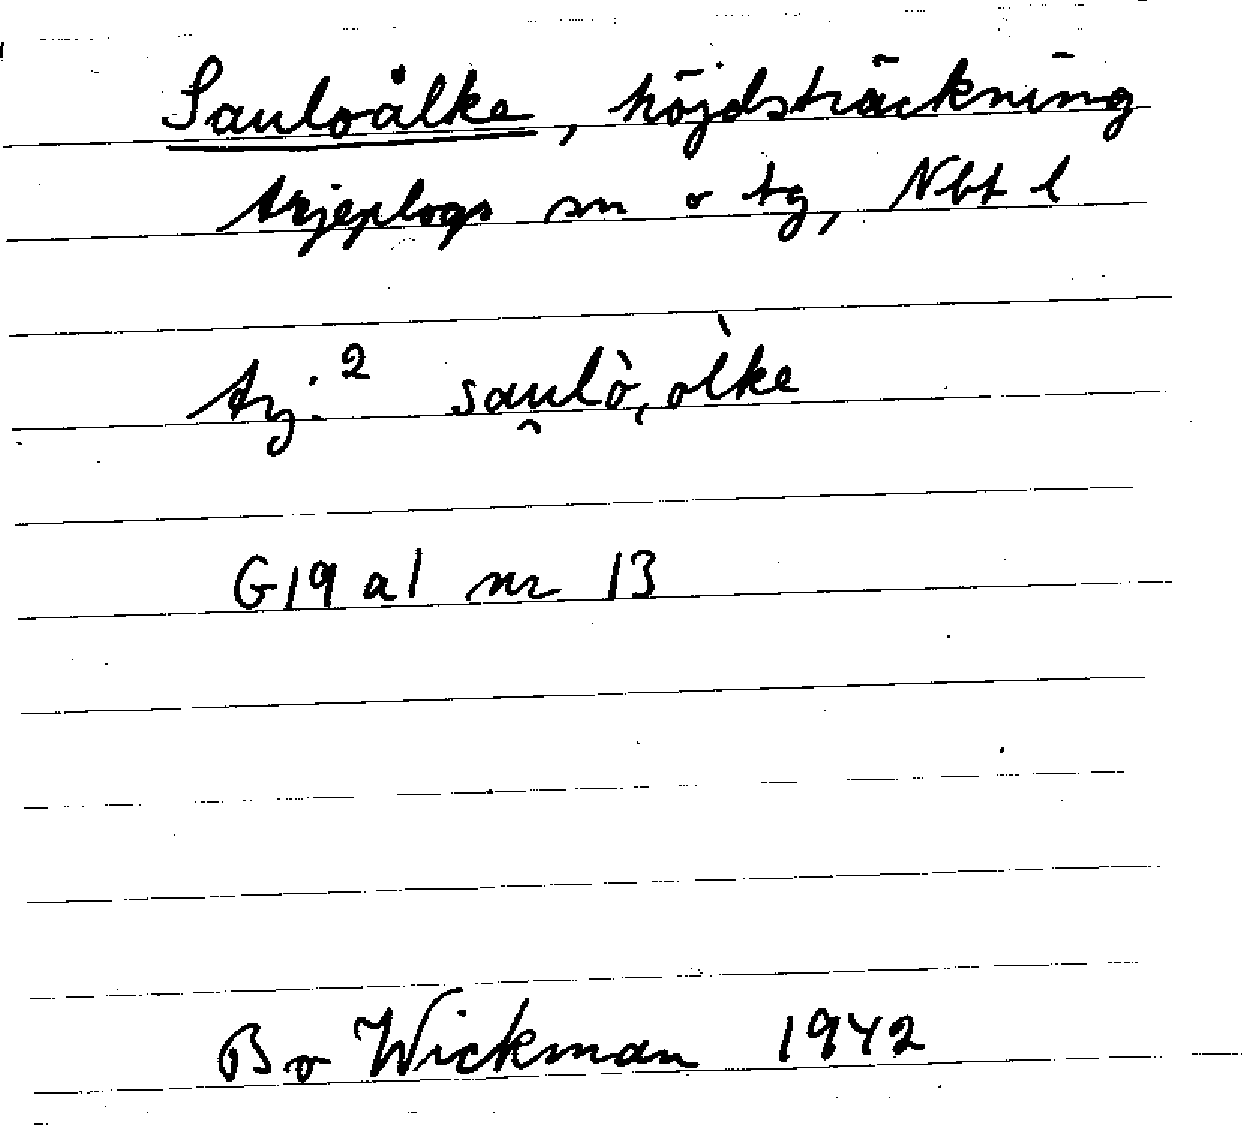 Sauloålke, höjdsträckning
Arjeplogs sn o tg, Nbt l
Arj.² sau̯lò͕ˌòlke
G19 a1 nr 13
Bo Wickman 1942